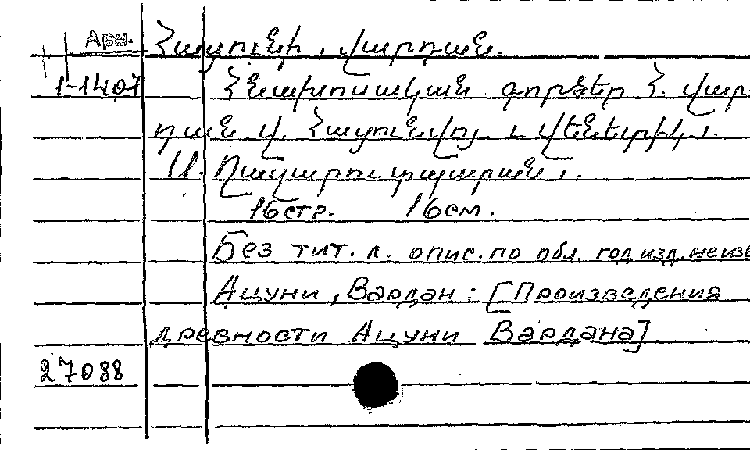 Арм. Հացունի, Վարդան.
1-1407 Հնախօսական գործեր Հ. Վար
դան վ. Հացունւոյ. Վենետիկ,
Ս. Ղազարու տպարան,.
16стр. 16см.
Без тит. л. опис. по обл. год изд. неизв
Ацуни, Вардан: [Произведения
древности Ацуни Вардана]
27088